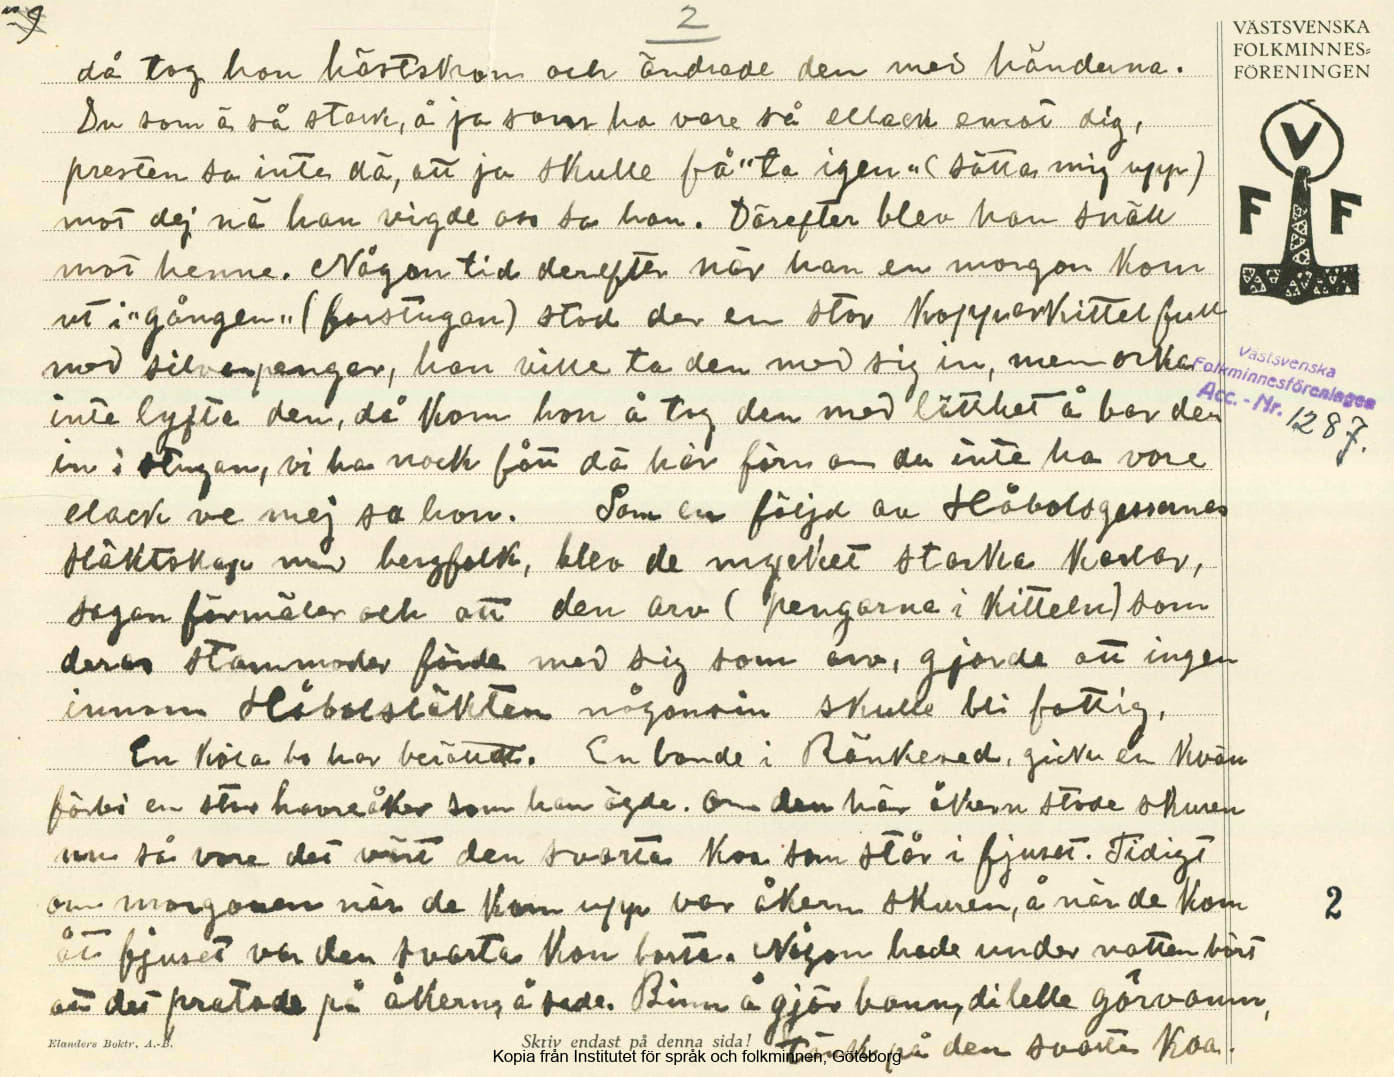 2
VÄSTSVENSKA
FOLKMINNES-
FÖRENINGEN
V
F F
då tog hon hästskon och ändrade den med händerna.
Du som ä så stark, å ja som ha vare så ellack emot dig,
presten sa inte dä, att ja skulle få "ta igen" (sätta mig upp)
mot dej nä han vigde oss sa hon. Därefter blev han snäll
mot henne. Någon tid derefter när han en morgon kom
ut i "gången" (forstugan) stod der en stor kopparkittel full
med silverpengar, han ville ta den med sig in, men orka
inte lyfta den, då kom hon å tog den med lätthet å bar den
in i stugan, vi ha nock fått dä här förr om du inte ha vore
elack ve mej sa hon. Som en följd av Håbolsgessarnas
släktskap med bergfolk, blev de mycket starka karlar,
sagan förmäler och att den arv (pengarna i kitteln) som
deras stammoder förde med sig som arv, gjorde att ingen
innom Håbolsläkten någonsin skulle bli fattig.
En höra ho har berättat. En bonde i Ränkesed, gick en kväll
förbi en stor havreåker som han ägde. Om den här åkern stode skuren
nu så vore det värt den svarta koa som står i fjuset. Tidigt
om morgonen när de kom upp var åkern skuren, å när de kom
åt fjuset var den svarta kon borta. Någon hade under natten hört
att det pratade på åkern, å sade. Binn å gjör bann, di lelle görvann,
Tänk på den svarta koa.
Västsvenska
Folkminnesföreningen
Acc. - Nr. 1287.
2
Elanders Boktr. A.-B.
Skriv endast på denna sida!
Kopia från Institutet för språk och folkminnen, Göteborg